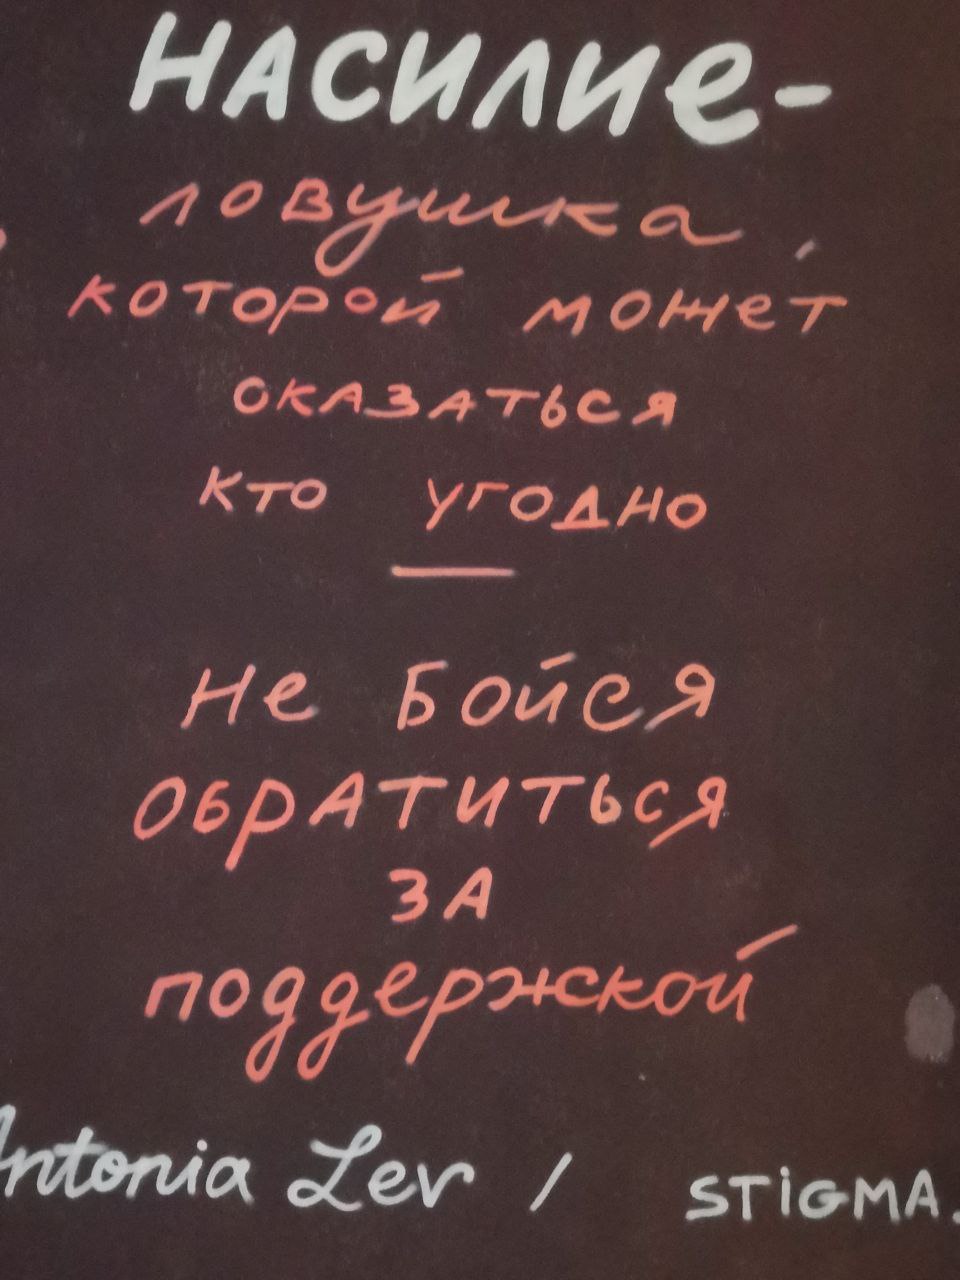 НАСИЛИЕ-
ловушка,
которой может
оказаться
кто угодно
Не Бойся
обратиться
за
поддержкой
Antonia Lev / STIGMA.